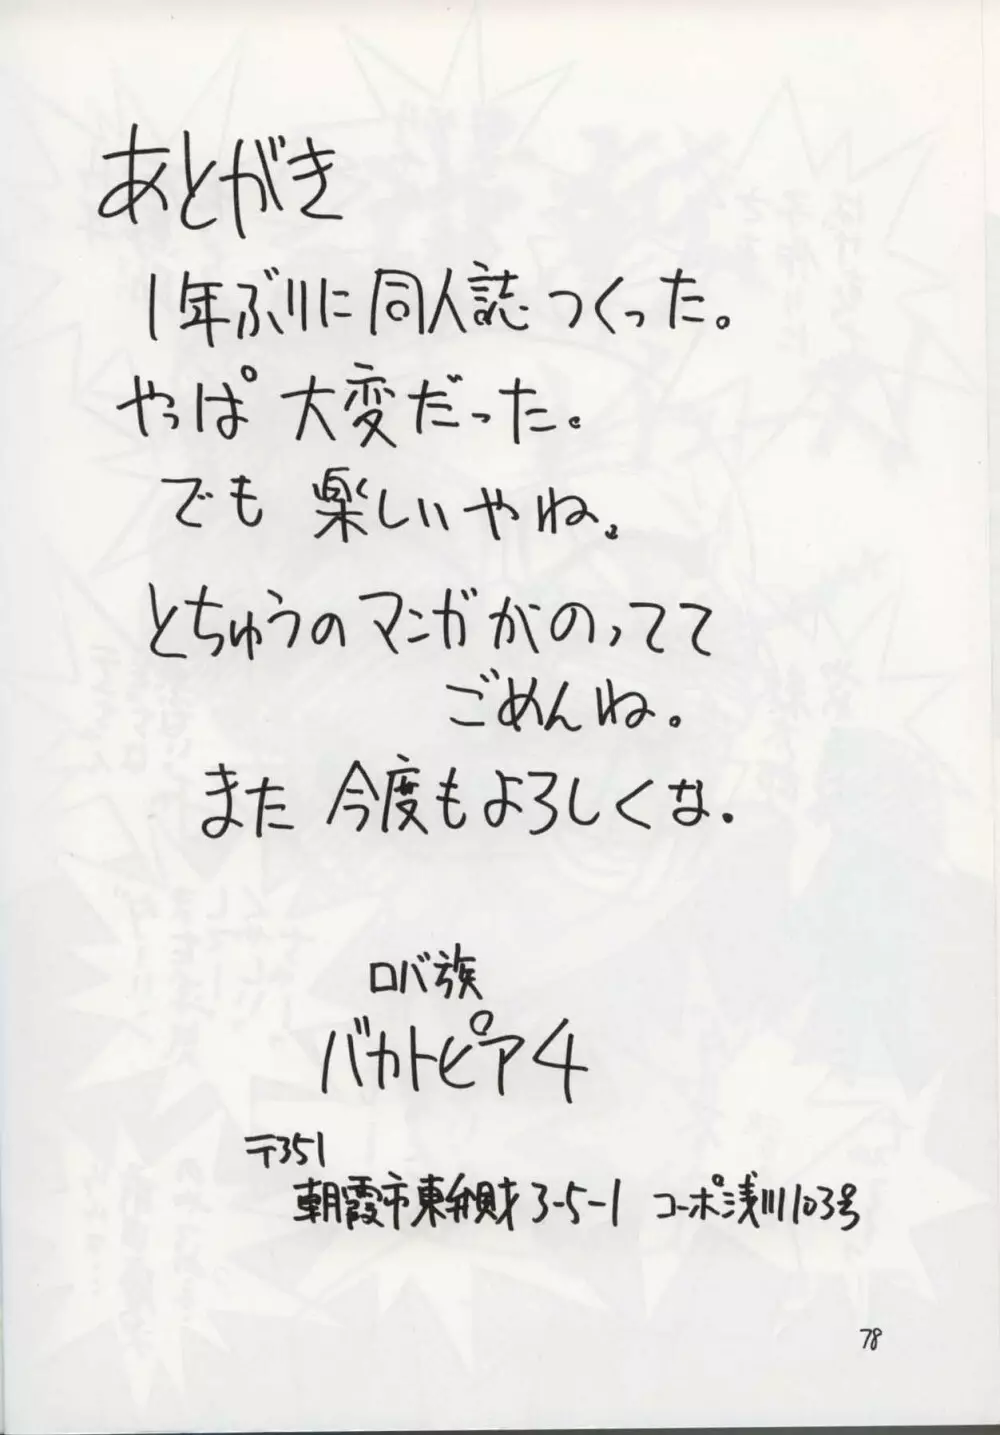 あとがき
1年ぶりに同人誌つくった。
やっぱ大変だった。
でも楽しいやね。
とちゅうのマンガがのってて
ごめんね。
また今度もよろしくな.
ロバ族
バカトピア4
〒351
朝霞市東弁財3-5-1 コーポ浅川103号
78